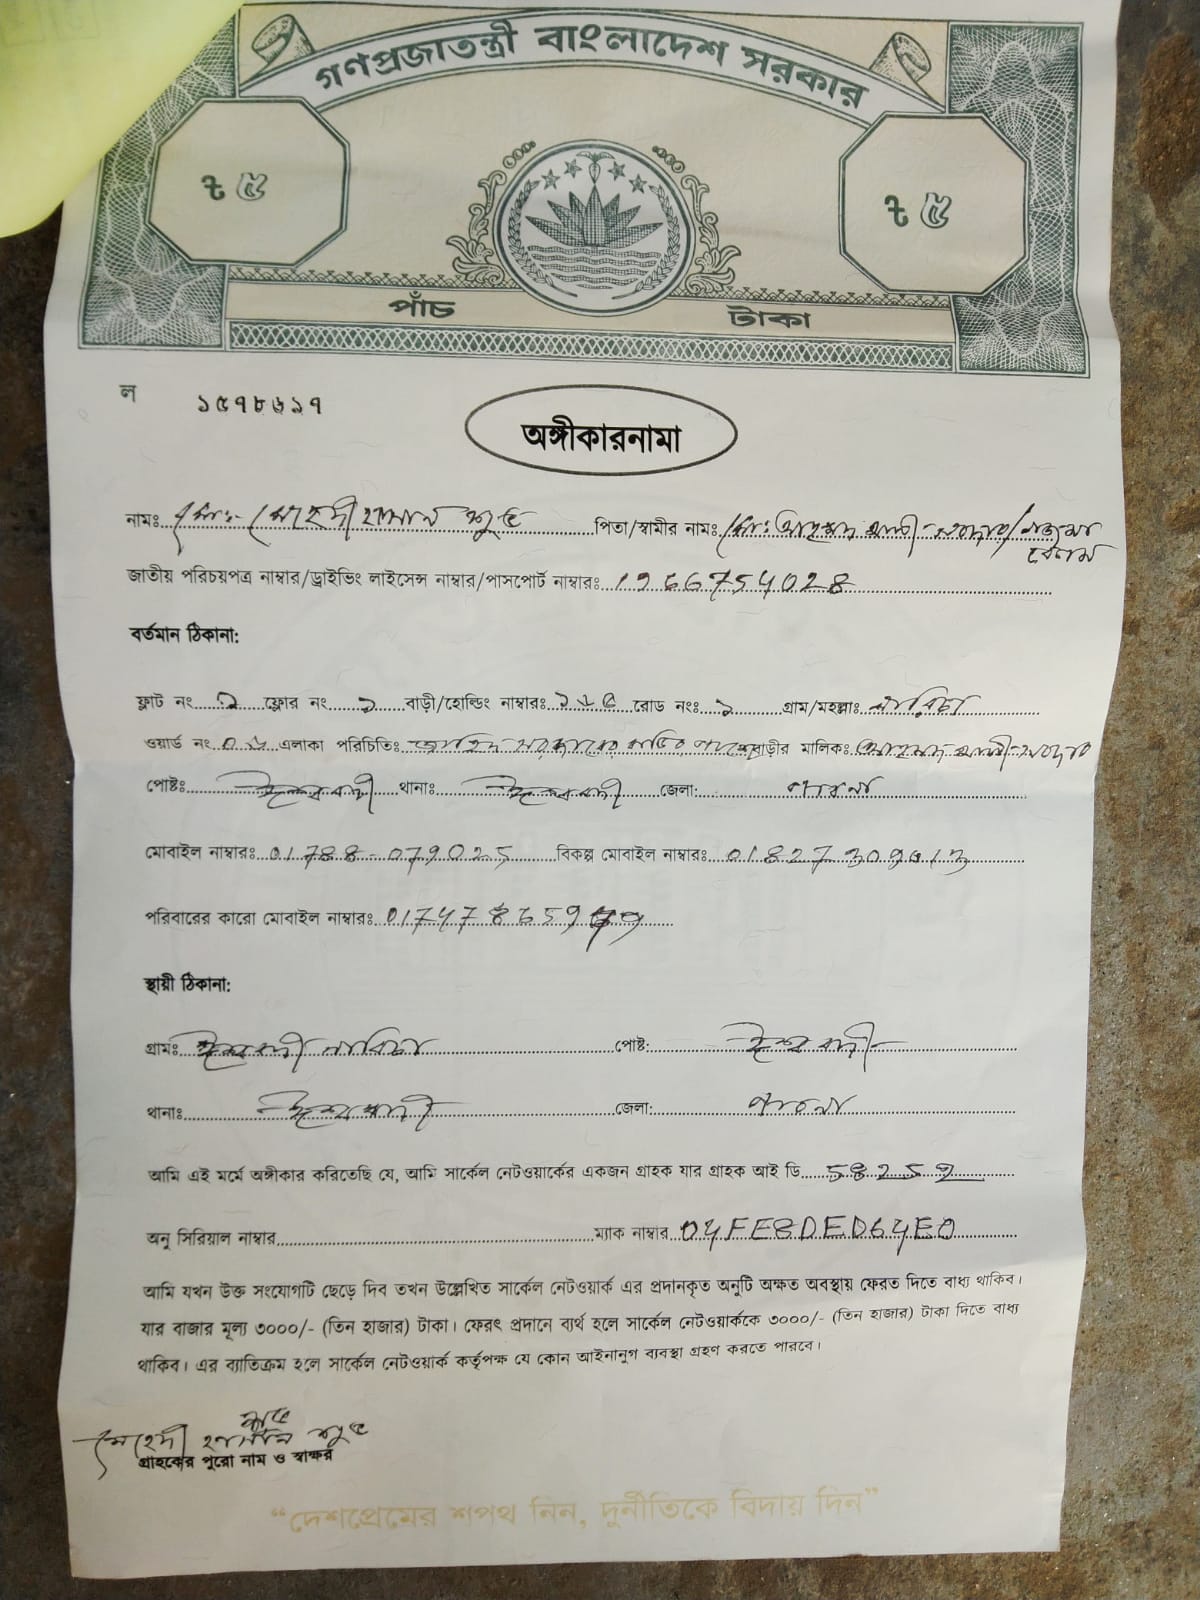 গণপ্রজাতন্ত্রী বাংলাদেশ সরকার
৳ ৫ ৳ ৫
পাঁচ টাকা
ল ১৫৭৮৬১৭
অঙ্গীকারনামা
নামঃ মোঃ- মেহেদী হাসান পিতা/স্বামীর নামঃ মোঃ
বেগম
জাতীয় পরিচয়পত্র নাম্বার/ড্রাইভিং লাইসেন্স নাম্বার/পাসপোর্ট নাম্বারঃ 1966754028
বর্তমান ঠিকানা:
ফ্লাট নং ফ্লোর নং ১ বাড়ী/হোল্ডিং নাম্বারঃ রোড নংঃ ১ গ্রাম/মহল্লাঃ
ওয়ার্ড নং এলাকা পরিচিতিঃ বাড়ীর মালিকঃ
পোষ্টঃ ঈশ্বরদী থানাঃ ঈশ্বরদী জেলা: পাবনা
মোবাইল নাম্বারঃ 01788-079025 বিকল্প মোবাইল নাম্বারঃ
পরিবারের কারো মোবাইল নাম্বারঃ
স্থায়ী ঠিকানা:
গ্রামঃ ঈশ্বরদী পোষ্ট: ঈশ্বরদী
থানাঃ ঈশ্বরদী জেলা: পাবনা
আমি এই মর্মে অঙ্গীকার করিতেছি যে, আমি সার্কেল নেটওয়ার্কের একজন গ্রাহক যার গ্রাহক আই ডি 58252
অনু সিরিয়াল নাম্বার ম্যাক নাম্বার 04FE8DED64E0
আমি যখন উক্ত সংযোগটি ছেড়ে দিব তখন উল্লেখিত সার্কেল নেটওয়ার্ক এর প্রদানকৃত অনুটি অক্ষত অবস্থায় ফেরত দিতে বাধ্য থাকিব।
যার বাজার মূল্য ৩০০০/- (তিন হাজার) টাকা। ফেরৎ প্রদানে ব্যর্থ হলে সার্কেল নেটওয়ার্ককে ৩০০০/- (তিন হাজার) টাকা দিতে বাধ্য
থাকিব। এর ব্যতিক্রম হলে সার্কেল নেটওয়ার্ক কর্তৃপক্ষ যে কোন আইনানুগ ব্যবস্থা গ্রহণ করতে পারবে।
মেহেদী হাসান
গ্রাহকের পুরো নাম ও স্বাক্ষর
“দেশপ্রেমের শপথ নিন, দুর্নীতিকে বিদায় দিন”